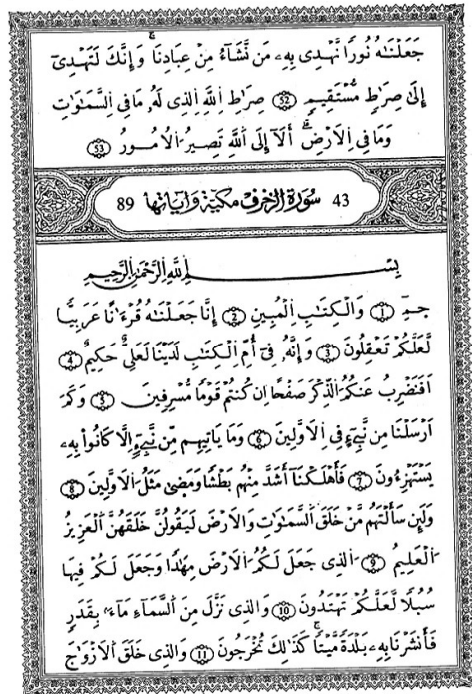 جَعَلْنَٰهُ نُورًا نَّهْدِى بِهِۦ مَن نَّشَآءُ مِنْ عِبَادِنَا ۚ وَإِنَّكَ لَتَهْدِىٓ
إِلَىٰ صِرَٰطٍ مُّسْتَقِيمٍ 52 صِرَٰطِ اِ۬للَّهِ اِ۬لذِى لَهُۥ مَا فِى اِ۬لسَّمَٰوَٰتِ
وَمَا فِى اِ۬لَارْضِ ۗ أَلَآ إِلَى اَ۬للَّهِ تَصِيرُ اُ۬لُامُورُ 53
43 سُورَةُ الزُّخْرُفِ مَكِّيَّة وَءَايَاتُهَا 89
بِسْمِ اِ۬للَّهِ اِ۬لرَّحْمَٰنِ اِ۬لرَّحِيمِ
جمٓ 1 وَالْكِتَٰبِ اِ۬لْمُبِينِ 2 إِنَّا جَعَلْنَٰهُ قُرْءَٰنًا عَرَبِيًّا
لَّعَلَّكُمْ تَعْقِلُونَ 3 وَإِنَّهُۥ فِىٓ أُمِّ اِ۬لْكِتَٰبِ لَدَيْنَا لَعَلِىٌّ حَكِيمٌ 4
اَفَنَضْرِبُ عَنكُمُ اُ۬لذِّكْرَ صَفْحًا اِن كُنتُمْ قَوْمًا مُّسْرِفِينَ 5 وَكَمَ
اَرْسَلْنَا مِن نَّبِىٓءٍ فِى اِ۬لَاوَّلِينَ 6 وَمَا يَاتِيهِم مِّن نَّبِىٓءٍ اِلَّا كَانُوا۟ بِهِۦ
يَسْتَهْزِءُونَ 7 فَأَهْلَكْنَآ أَشَدَّ مِنْهُم بَطْشًا وَمَضَىٰ مَثَلُ اُ۬لَاوَّلِينَ 8
وَلَئِن سَأَلْتَهُم مَّنْ خَلَقَ اَ۬لسَّمَٰوَٰتِ وَالَارْضَ لَيَقُولُنَّ خَلَقَهُنَّ اَ۬لْعَزِيزُ
اُ۬لْعَلِيمُ 9 اُ۬لذِى جَعَلَ لَكُمُ اُ۬لَارْضَ مِهَٰدًا وَجَعَلَ لَكُمْ فِيهَا
سُبُلًا لَّعَلَّكُمْ تَهْتَدُونَ 10 وَالذِى نَزَّلَ مِنَ اَ۬لسَّمَآءِ مَآءً بِقَدَرٍ
فَأَنشَرْنَا بِهِۦ بَلْدَةً مَّيْتًا ۚ كَذَٰلِكَ تُخْرَجُونَ 11 وَالذِى خَلَقَ اَ۬لَازْوَٰجَ